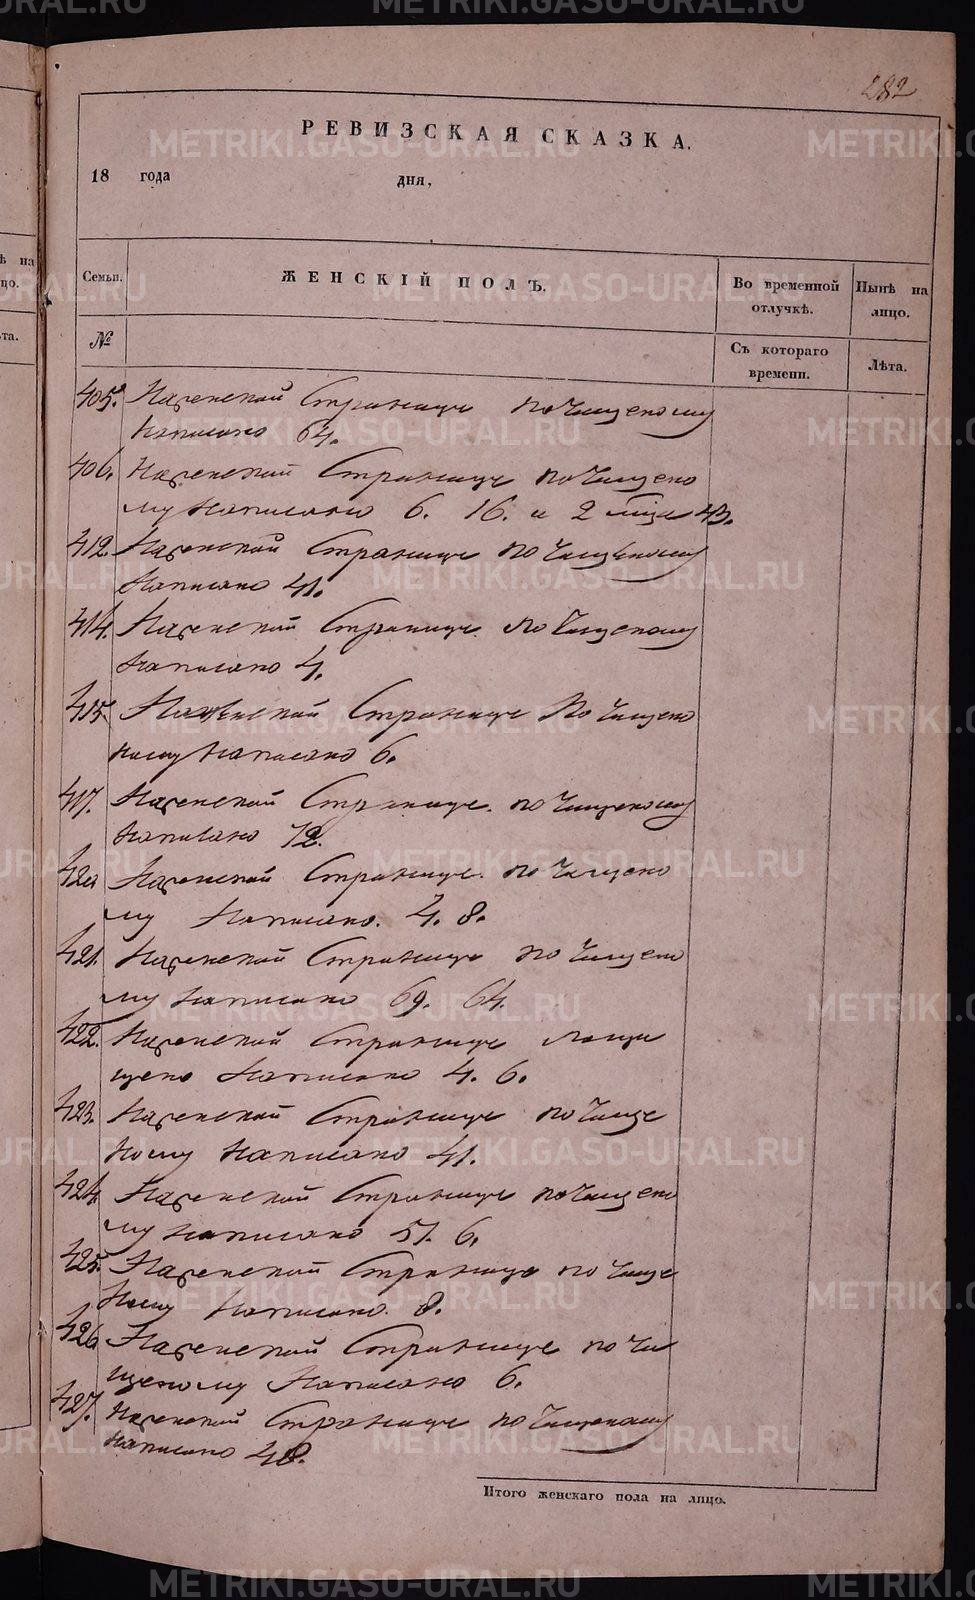 282
РЕВИЗСКАЯ СКАЗКА.
18 года дня,
Семьи. ЖЕНСКІЙ ПОЛЪ. Во временной отлучкѣ. Нынѣ на лицо.
№ Съ котораго времени. Лѣта.
405. На женской Странице по чищеному
Написано 64.
406. На женской Странице по чищено
му Написано 6. 16. и 2 43.
412. На женской Странице по чищеному
Написано 41.
414. На женской Странице по чищеному
Написано 4.
415. На женской Странице по чищено
му Написано 6.
417. На женской Странице по чищеному
Написано 12.
420 На женской Странице по чищено
му Написано. 4. 8.
421. На женской Странице по чищено
му Написано 69. 64.
422. На женской Странице
Написано 4. 6.
423. На женской Странице по чище
ному Написано 41.
424. На женской Странице по чищено
му Написано 51. 6.
425. На женской Странице по чище
ному Написано 8.
426 На женской Странице по чи
щеному Написано 6.
427. На женской Странице по чищеному
Написано 48.
Итого женскаго пола на лицо.
METRIKI.GASO-URAL.RU